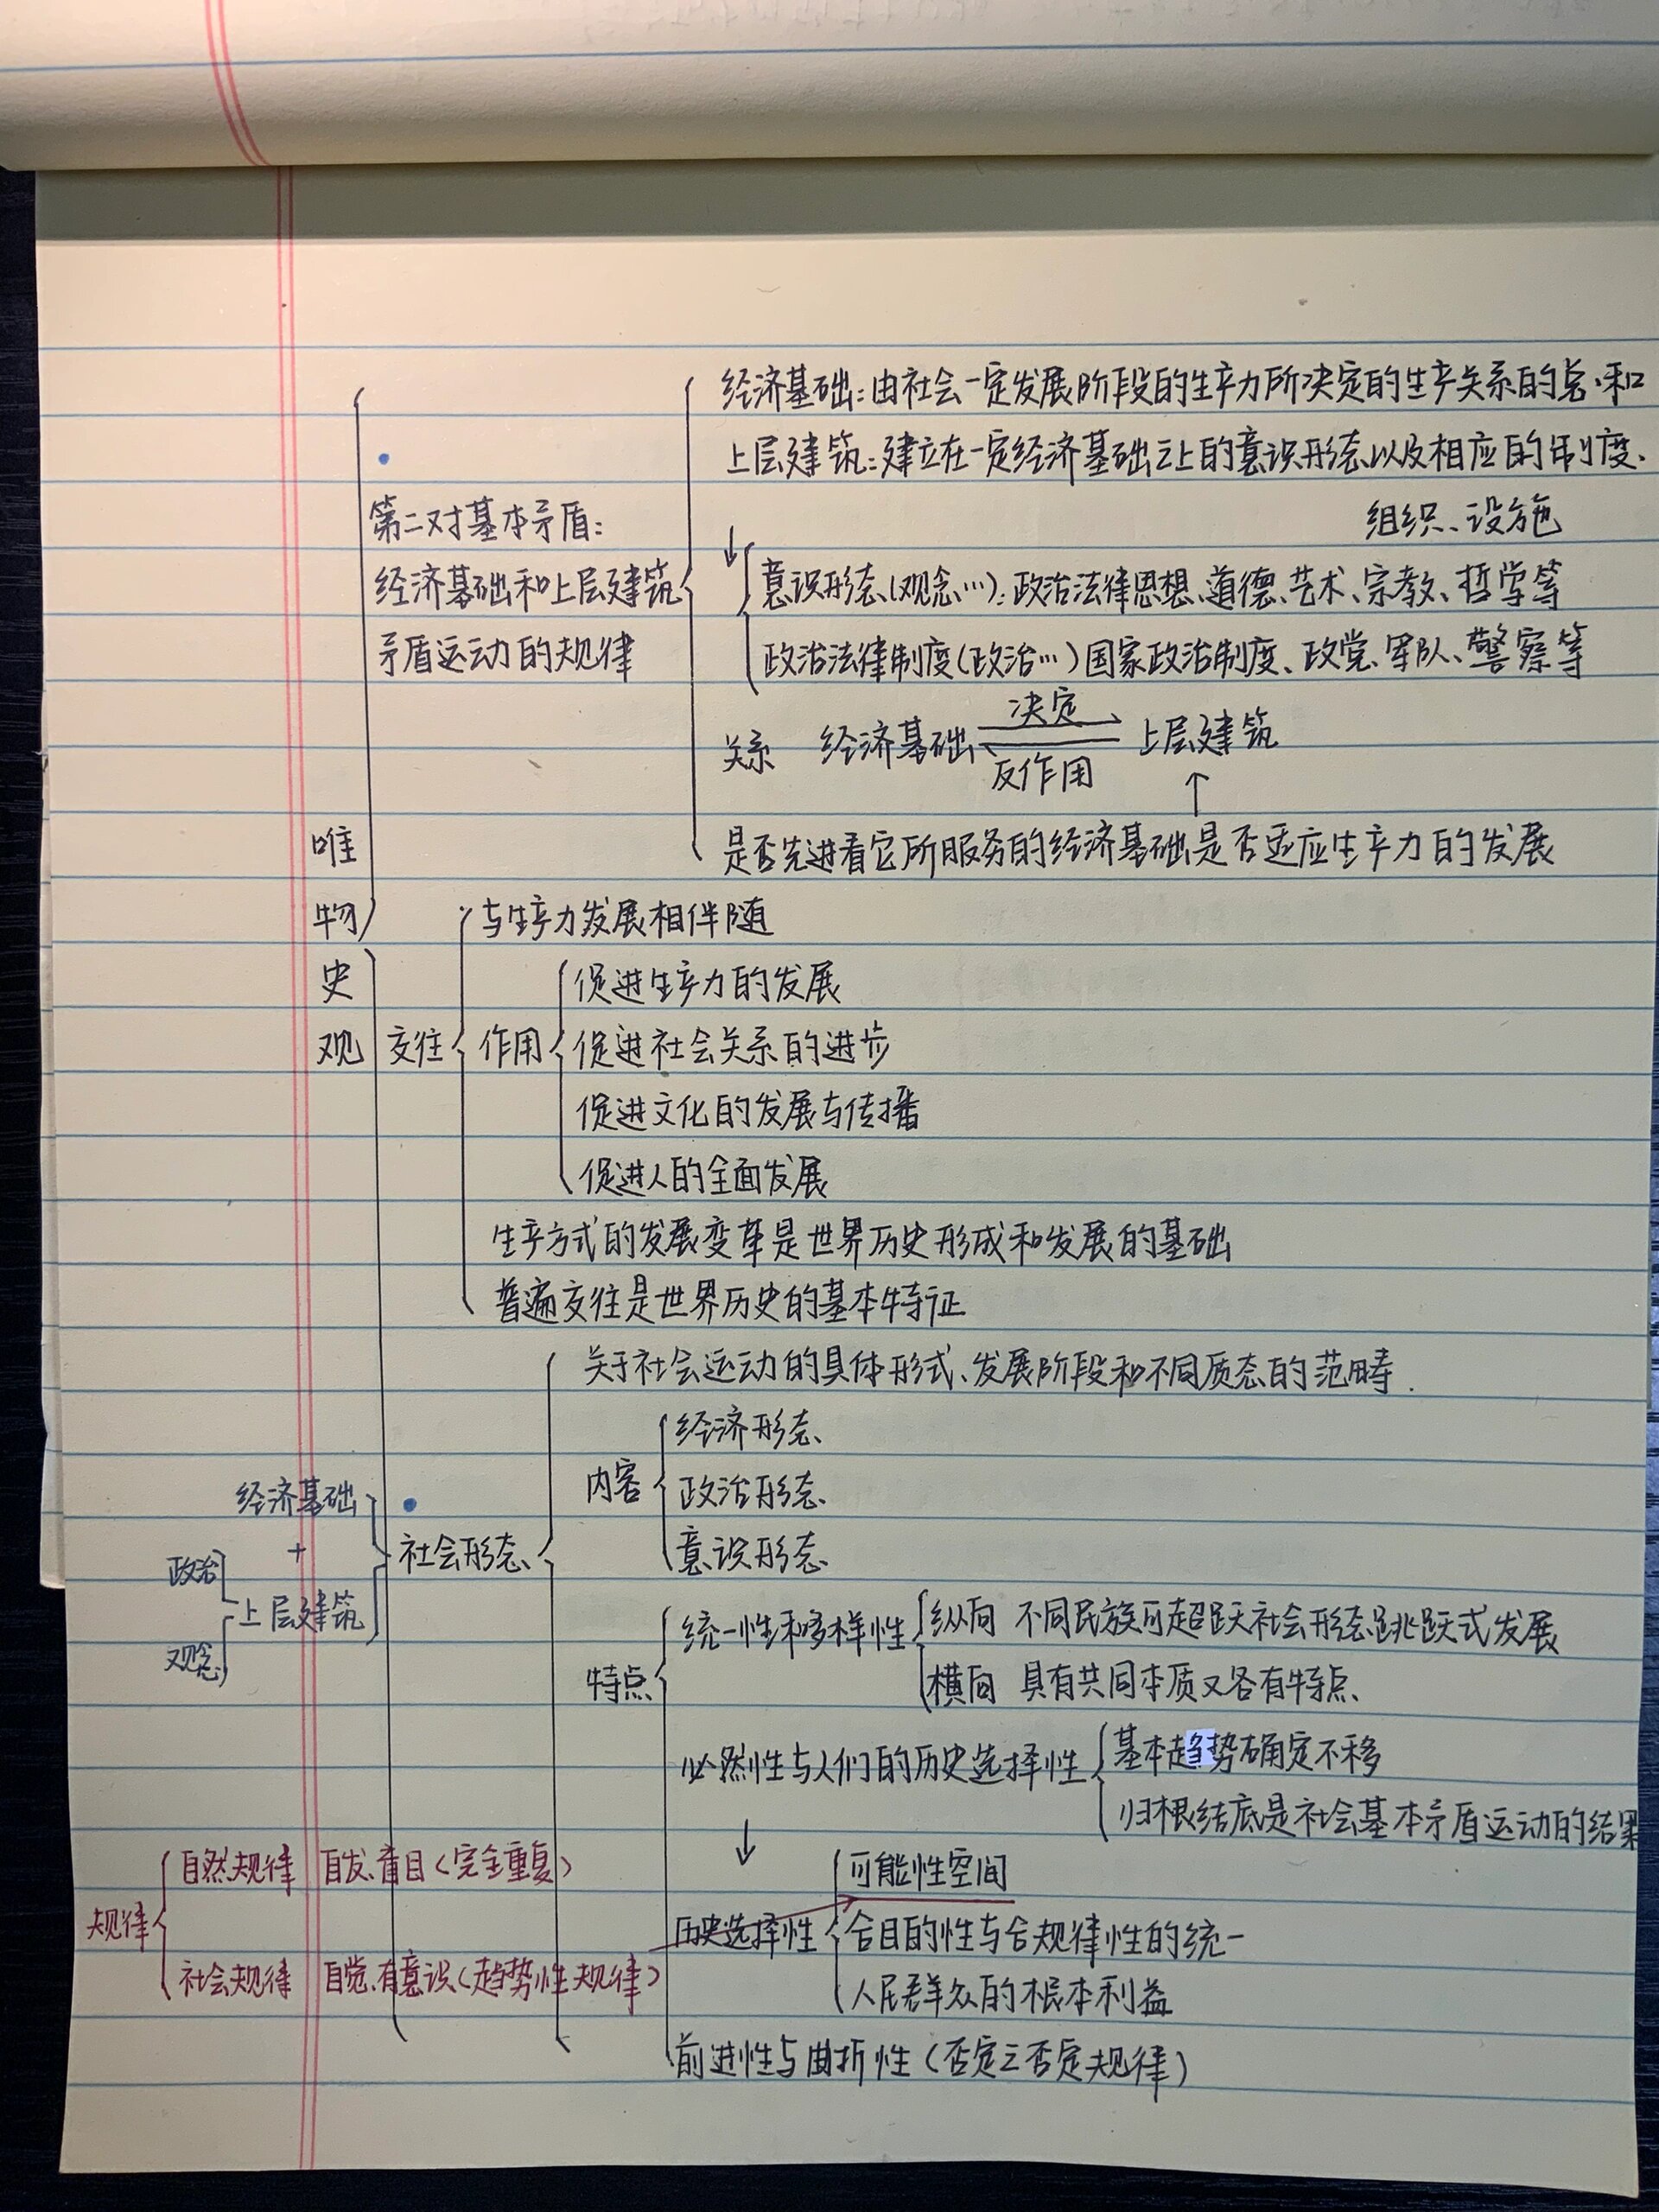 经济基础:由社会一定发展阶段的生产力所决定的生产关系的总和
上层建筑:建立在一定经济基础之上的意识形态以及相应的制度、
组织、设施
第二对基本矛盾:
经济基础和上层建筑
矛盾运动的规律
↓
意识形态(观念…):政治法律思想、道德、艺术、宗教、哲学等
政治法律制度(政治…)国家政治制度、政党、军队、警察等
关系 经济基础 决定 上层建筑
反作用
↑
是否先进看它所服务的经济基础是否适应生产力的发展
唯
物
史
观
与生产力发展相伴随
交往
作用
促进生产力的发展
促进社会关系的进步
促进文化的发展与传播
促进人的全面发展
生产方式的发展变革是世界历史形成和发展的基础
普遍交往是世界历史的基本特征
关于社会运动的具体形式、发展阶段和不同质态的范畴.
经济基础
+
政治
上层建筑
观念
社会形态
内容
经济形态
政治形态
意识形态
特点
统一性和多样性
纵向 不同民族可超跃社会形态跳跃式发展
横向 具有共同本质又各有特点
必然性与人们的历史选择性
基本趋势确定不移
归根结底是社会基本矛盾运动的结果
↓
历史选择性
可能性空间
合目的性与合规律性的统一
人民群众的根本利益
前进性与曲折性(否定之否定规律)
规律
自然规律 自发、盲目(完全重复)
社会规律 自觉、有意识(趋势性规律)